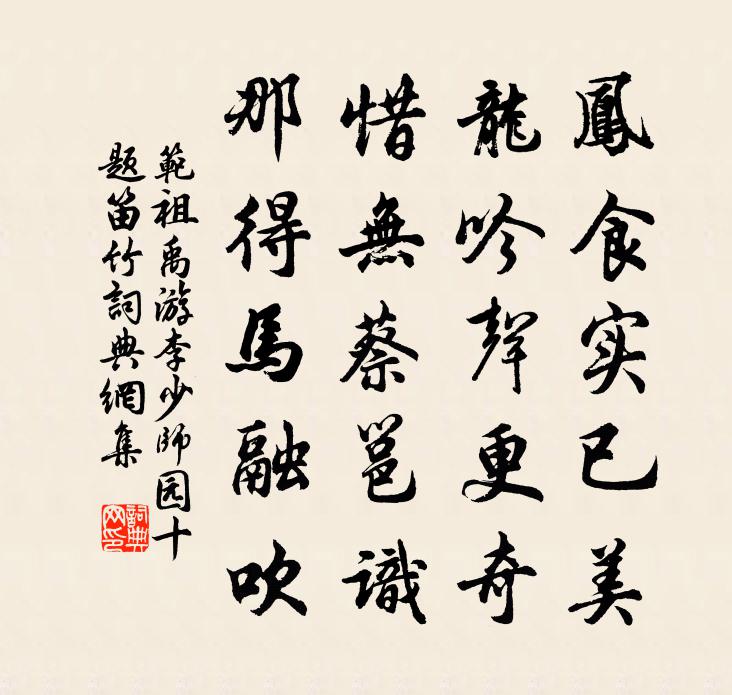 鳳食实已美
龍吟聲更奇
惜無蔡邕識
那得馬融吹
範祖禹游李少師园十
题笛竹詞典網集
詞典网印